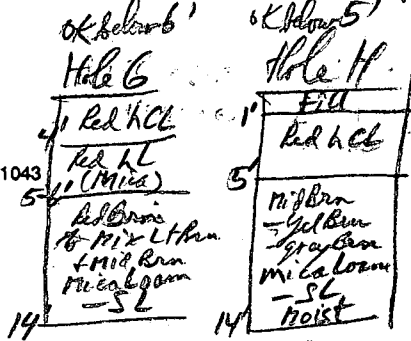 OK below 6'
Hole G
Red h CL
4'
Red h L
1043
(Mica)
5-6'
Red Brn
Mix Lt Brn
+ Mid Brn
Mica Loam
- SL
14'
OK below 5'
Hole H
1'
Fill
Red h CL
5'
Mid Brn
- Yel Brn
- gray Brn
Mica Loam
- SL
Moist
14'